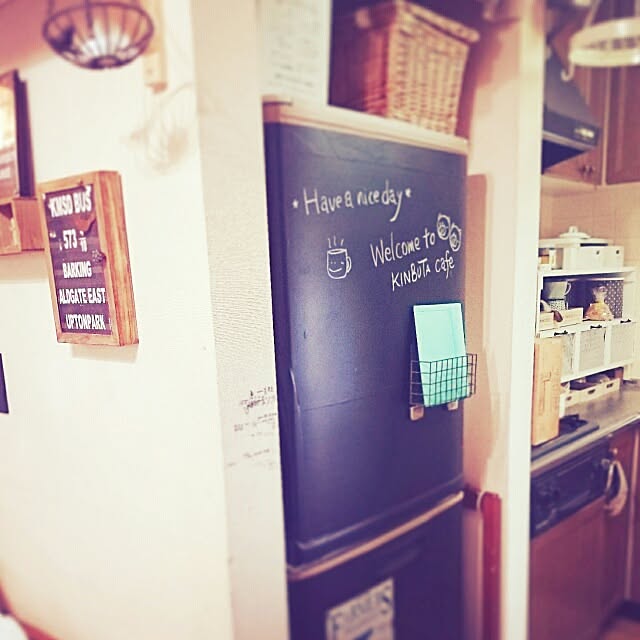 "KINSO BUS"
573
BARKING
ALDGATE EAST
UPTONPARK
* Have a nice day *
Welcome to
KINBUTA cafe